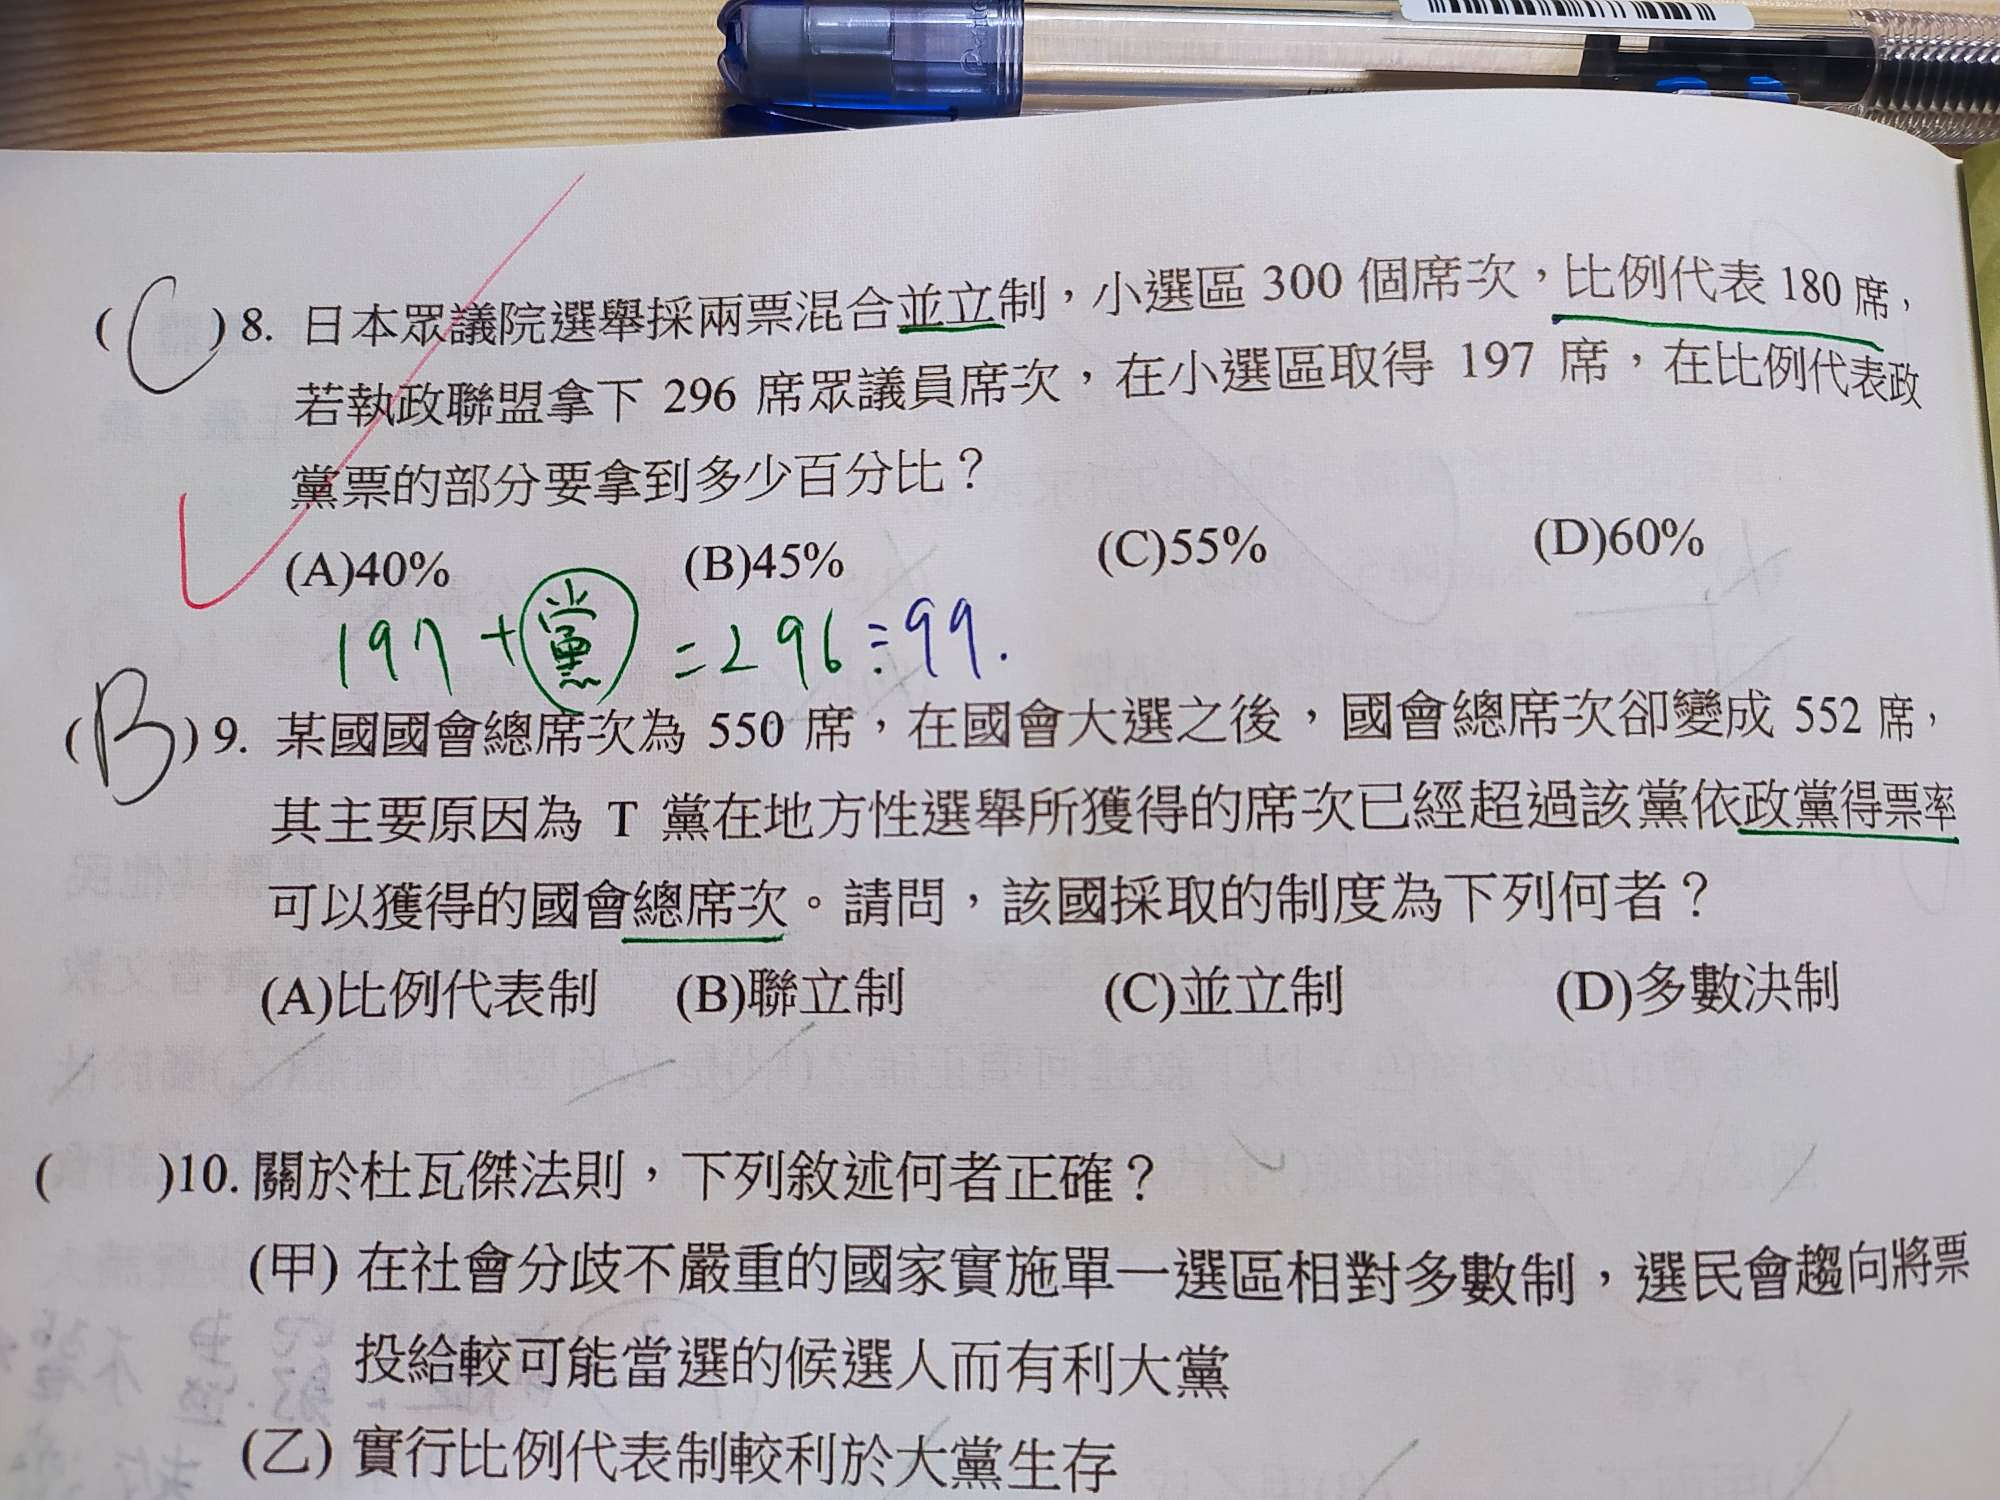 (C)8. 日本眾議院選舉採兩票混合並立制，小選區 300 個席次，比例代表 180 席，
若執政聯盟拿下 296 席眾議員席次，在小選區取得 197 席，在比例代表政
黨票的部分要拿到多少百分比？
(A)40% (B)45% (C)55% (D)60%
197 + 黨 = 296 99.
(B)9. 某國國會總席次為 550 席，在國會大選之後，國會總席次卻變成 552 席，
其主要原因為 T 黨在地方性選舉所獲得的席次已經超過該黨依政黨得票率
可以獲得的國會總席次。請問，該國採取的制度為下列何者？
(A)比例代表制 (B)聯立制 (C)並立制 (D)多數決制
( )10. 關於杜瓦傑法則，下列敘述何者正確？
(甲) 在社會分歧不嚴重的國家實施單一選區相對多數制，選民會趨向將票
投給較可能當選的候選人而有利大黨
(乙) 實行比例代表制較利於大黨生存